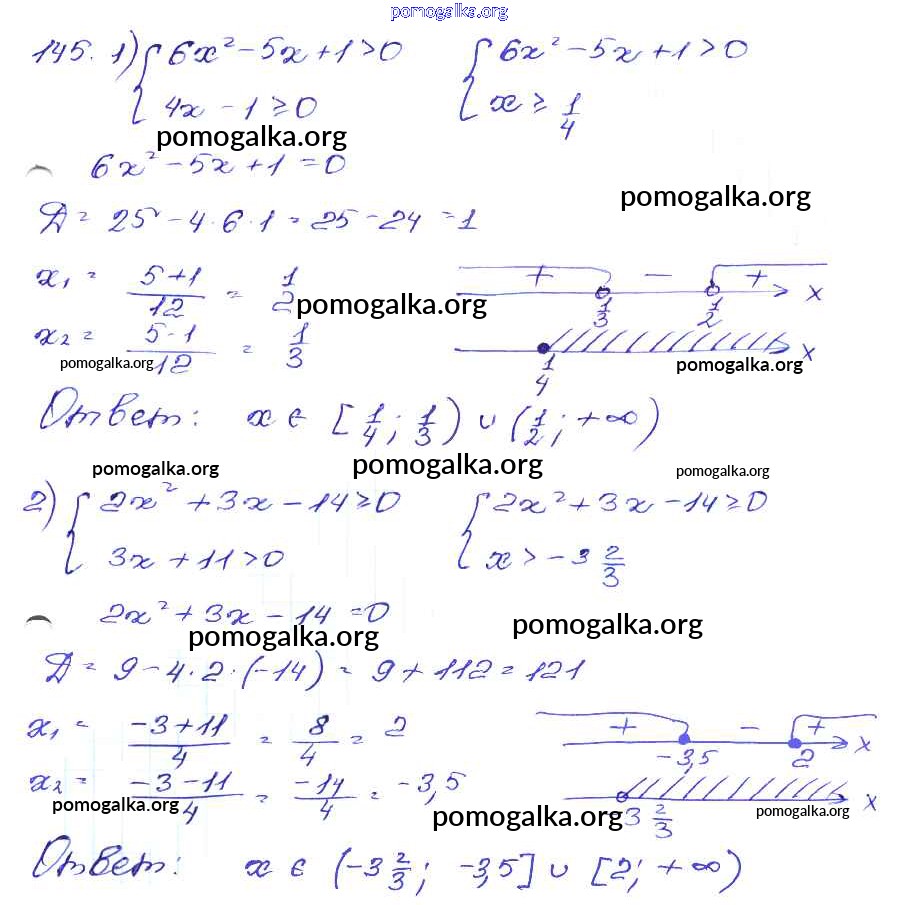 pomogalka.org
145. 1) { 6x² - 5x + 1 > 0 { 6x² - 5x + 1 > 0
4x - 1 ≥ 0 x ≥ 1/4
pomogalka.org
6x² - 5x + 1 = 0
pomogalka.org
Д = 25 - 4 · 6 · 1 = 25 - 24 = 1
x₁ = (5+1)/12 = 1/2 + - + x
pomogalka.org 1/3 1/2
x₂ = (5-1)/12 = 1/3 x
pomogalka.org pomogalka.org
1/4
Ответ: x ∈ [1/4; 1/3) ∪ (1/2; +∞)
pomogalka.org pomogalka.org pomogalka.org
2) { 2x² + 3x - 14 ≥ 0 { 2x² + 3x - 14 ≥ 0
3x + 11 > 0 x > -3 2/3
2x² + 3x - 14 = 0
pomogalka.org pomogalka.org
Д = 9 - 4 · 2 · (-14) = 9 + 112 = 121
x₁ = (-3+11)/4 = 8/4 = 2 + - + x
-3,5 2
x₂ = (-3-11)/4 = -14/4 = -3,5 x
pomogalka.org pomogalka.org 3 2/3 pomogalka.org
Ответ: x ∈ (-3 2/3; -3,5] ∪ [2; +∞)